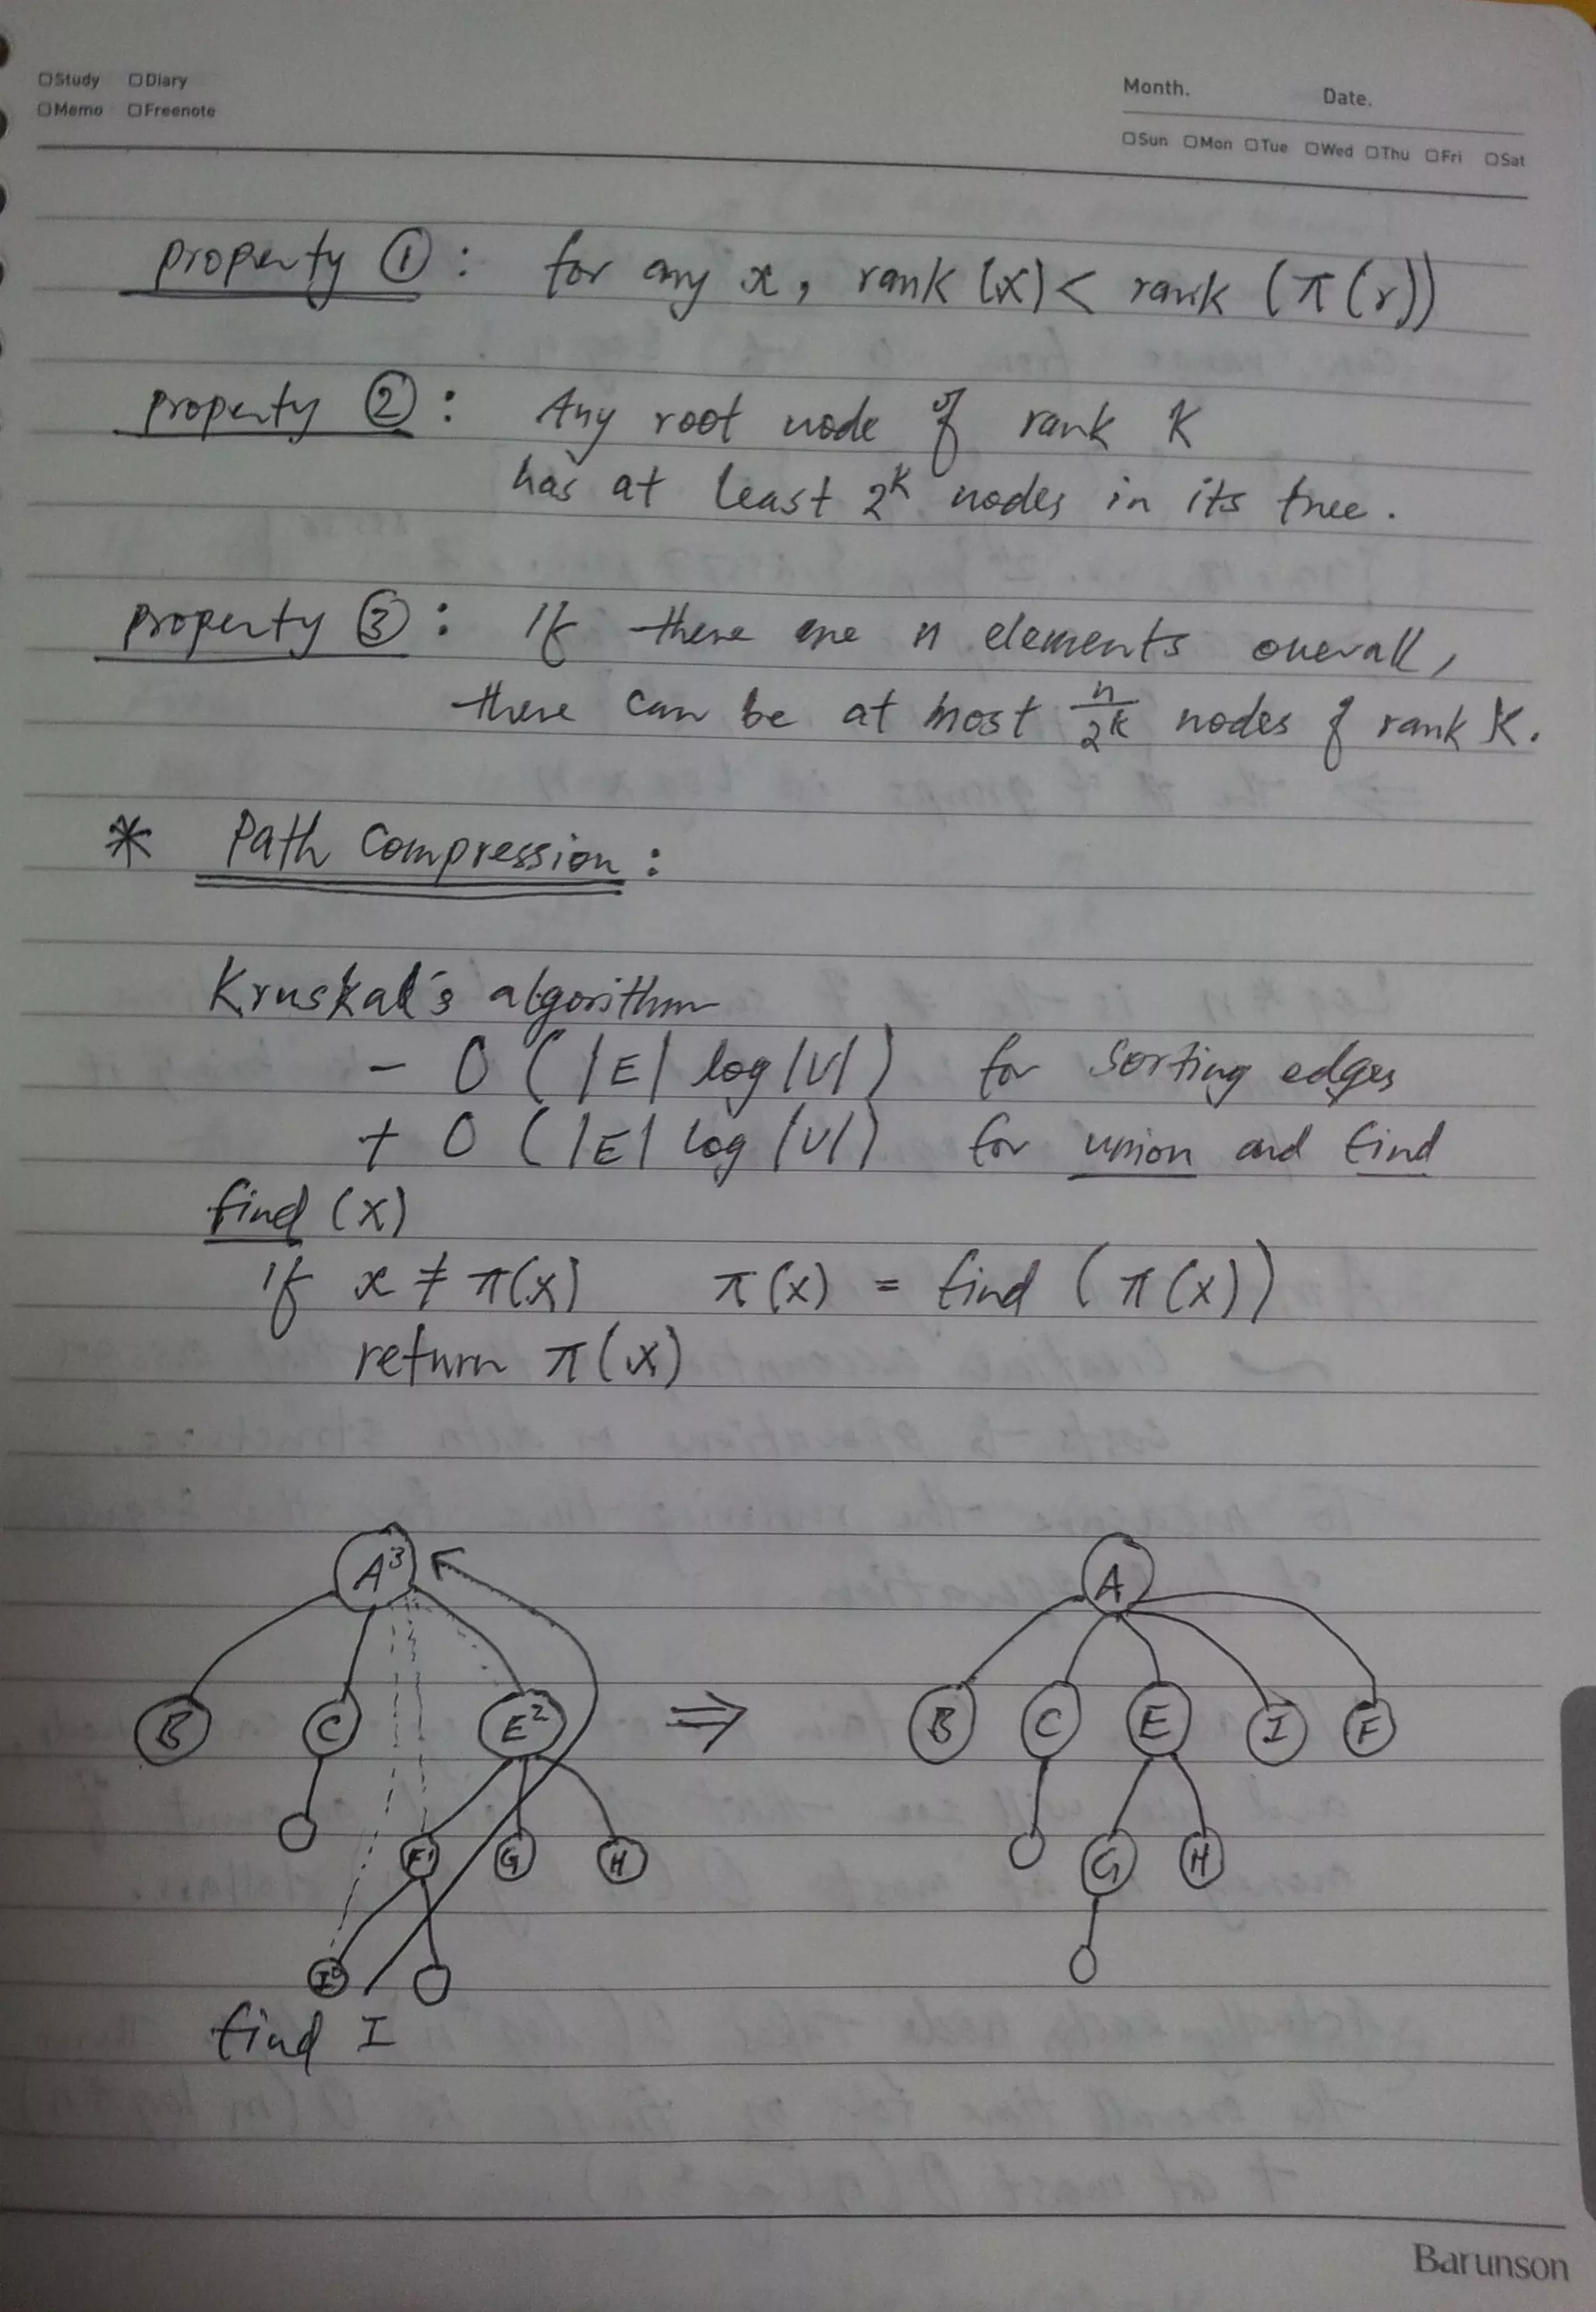 □Study □Diary
□Memo □Freenote
Month. Date.
□Sun □Mon □Tue □Wed □Thu □Fri □Sat
property ①: for any x, rank (x) < rank (π(x))
property ②: Any root node of rank K
has at least 2^k nodes in its tree.
property ③: If there are n elements overall,
there can be at most n/2^k nodes of rank K.
* Path compression:
Kruskal's algorithm
- O (|E| log |V|) for sorting edges
+ O (|E| log |V|) for union and find
find (x)
if x ≠ π(x) π(x) = find (π(x))
return π(x)
A³ A
B C E² ⇒ B C E I F
F¹ G H G H
I⁰
find I
Barunson